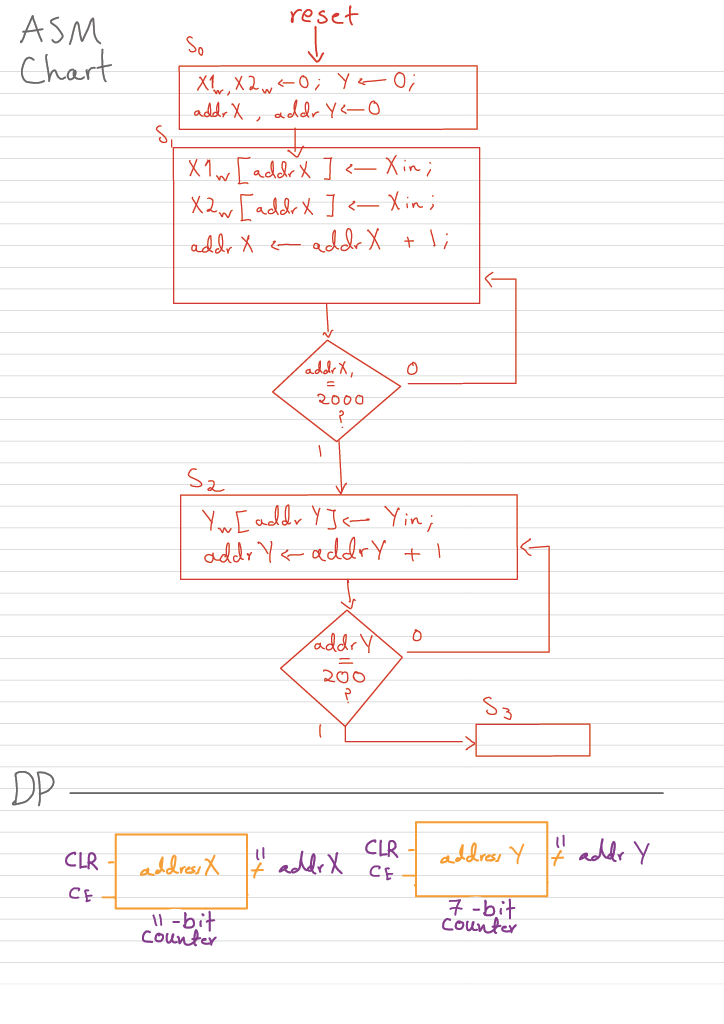 ASM
Chart
reset
S₀
X1w, X2w ← 0; Y ← 0;
addrX , addrY ← 0
S₁
X1w [addrX ] ← Xin;
X2w [addrX ] ← Xin;
addrX ← addrX + 1;
addrX,
=
2000
?
0
1
S₂
Yw[addrY] ← Yin;
addrY ← addrY + 1
addrY
=
200
?
0
1
S₃
DP
CLR
CE
address X
11
addrX
11-bit
counter
CLR
CE
address Y
11
addrY
7-bit
counter